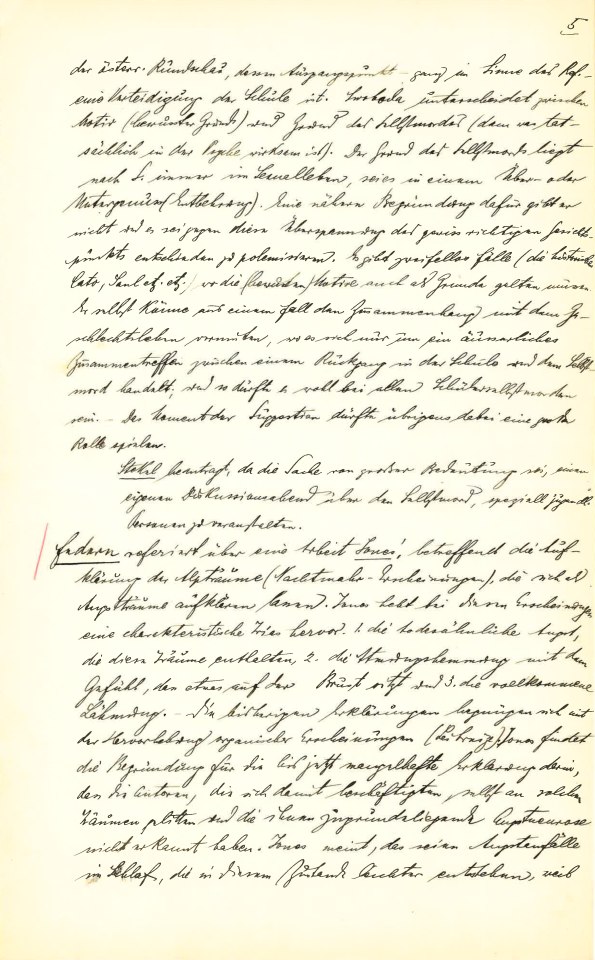 5
der österr. Rundschau, dessen Ausgangspunkt – ganz im Sinne des Ref. –
eine Verteidigung der Schule ist. Swoboda unterscheidet zwischen
Motiv (bewusster Grund) und Grund des Selbstmordes (dem was tat-
sächlich in der Psyche wirksam ist). Der Grund des Selbstmords liegt
nach S. immer im Sexualleben, sei es in einem Über- oder
Untergenuss (Entbehrung). Eine nähere Begründung dafür gibt er
nicht und es sei gegen diese Überspannung des gewiss richtigen Gesichts-
punkts entschieden zu polemisieren. Es gibt zweifellos Fälle (die
Cato, Saul etc. etc.) wo die (bewussten) Motive auch als Gründe gelten müssen.
Er selbst könne aus einem Fall den Zusammenhang mit dem Ge-
schlechtsleben vermuten, wo es sich nur um ein äusserliches
Zusammentreffen zwischen einem Rückgang in der Schule und dem Selbst-
mord handelt; und so dürfte es wohl bei allen Schülerselbstmorden
sein. – Das Moment der Suggestion dürfte übrigens dabei eine grosse
Rolle spielen.
Stekel beantragt, da die Sache von grosser Bedeutung sei, einen
eigenen Diskussionsabend über den Selbstmord, speziell jugendl.
Personen zu veranstalten.
Federn referiert über eine Arbeit Jones', betreffend die Auf-
klärung der Alpträume (Nachtmahr-Erscheinungen), die sich als
Angstträume aufklären lassen. Jones hebt bei diesen Erscheinungen
eine charakteristische Trias hervor. 1. die todesähnliche Angst,
die diese Träume enthalten, 2. die Atmungshemmung mit dem
Gefühl, das etwas auf der Brust sitzt und 3. die vollkommene
Lähmung. – Die bisherigen Erklärungen begnügen sich mit
der Hervorhebung organischer Erscheinungen Jones findet
die Begründung für die bis jetzt mangelhafte Erklärung darin,
dass die Autoren, die sich damit beschäftigten, selbst an solchen
Träumen litten und die ihnen zugrundeliegende Angstneurose
nicht erkannt haben. Jones meint, das seien Angstanfälle
im Schlaf, die in diesem Zustande leichter entstehen, weil